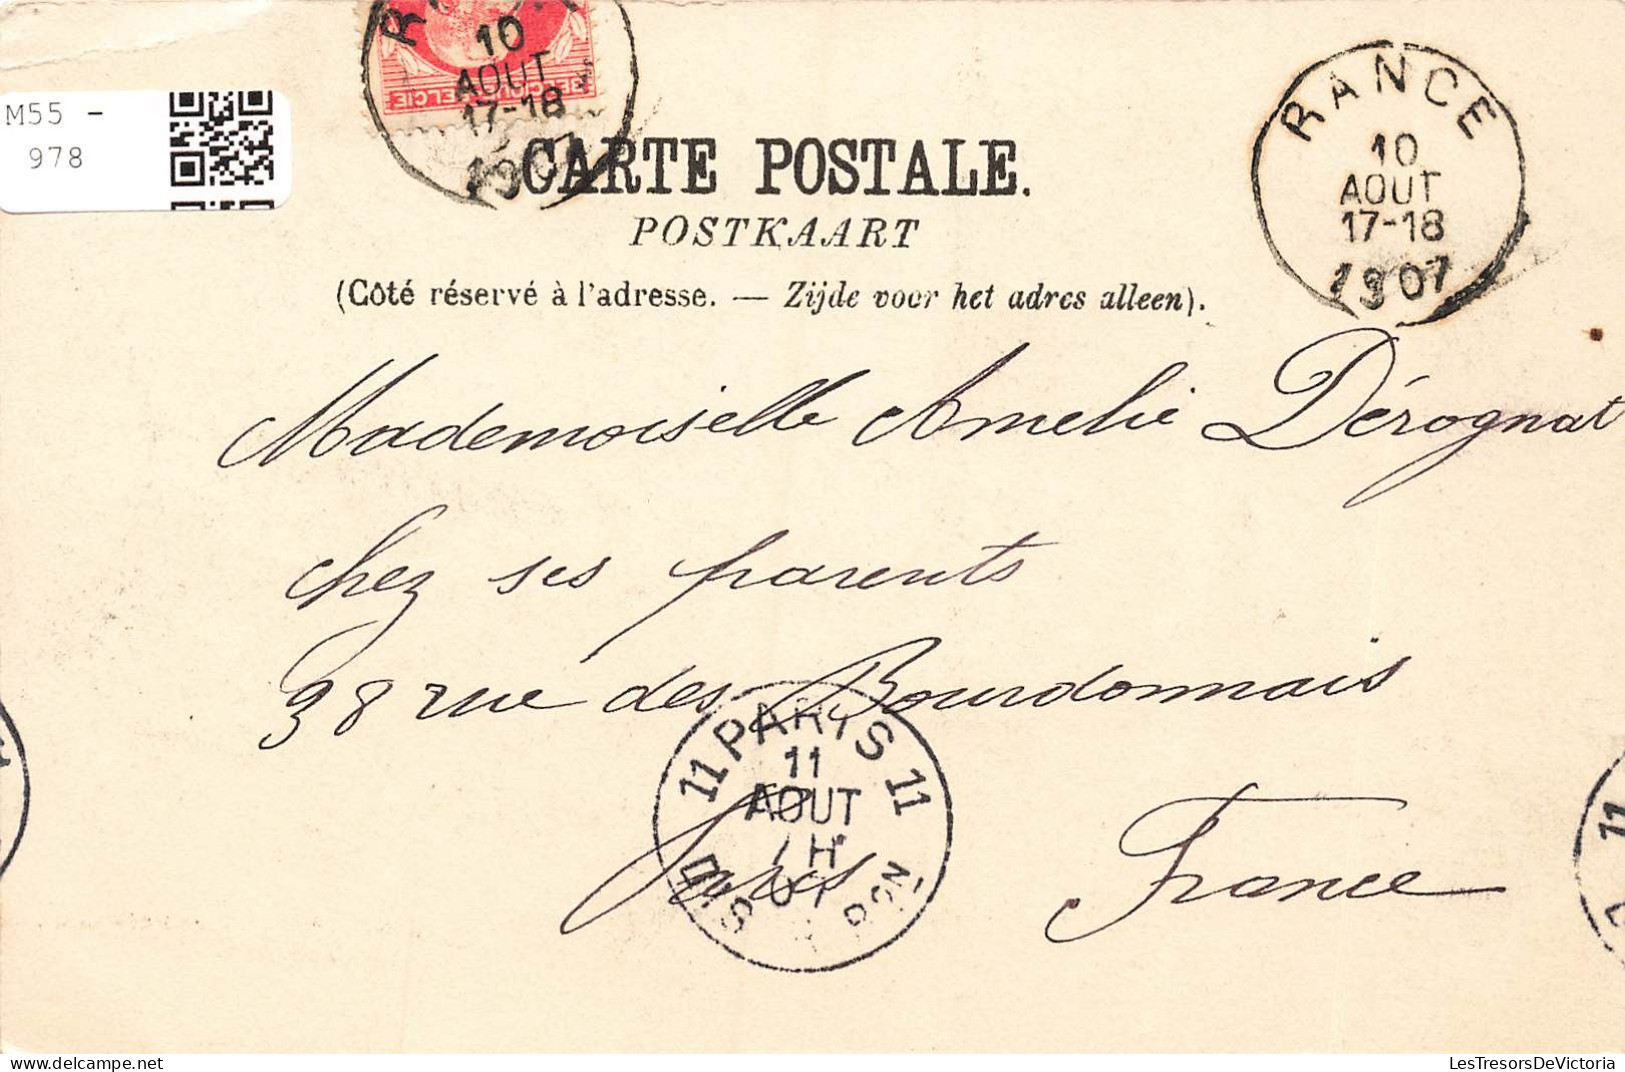 M55 -
978
10
AOUT
17-18
1907
BELGIQUE BELGIE
CARTE POSTALE.
POSTKAART
(Côté réservé à l'adresse. — Zijde voor het adres alleen).
RANCE
10
AOUT
17-18
1907
Mademoiselle Amelie Dérognat
chez ses parents
38 rue des Bourdonnais
Paris France
11 PARIS 11
11
AOUT
7H
07
LesTresorsDeVictoria